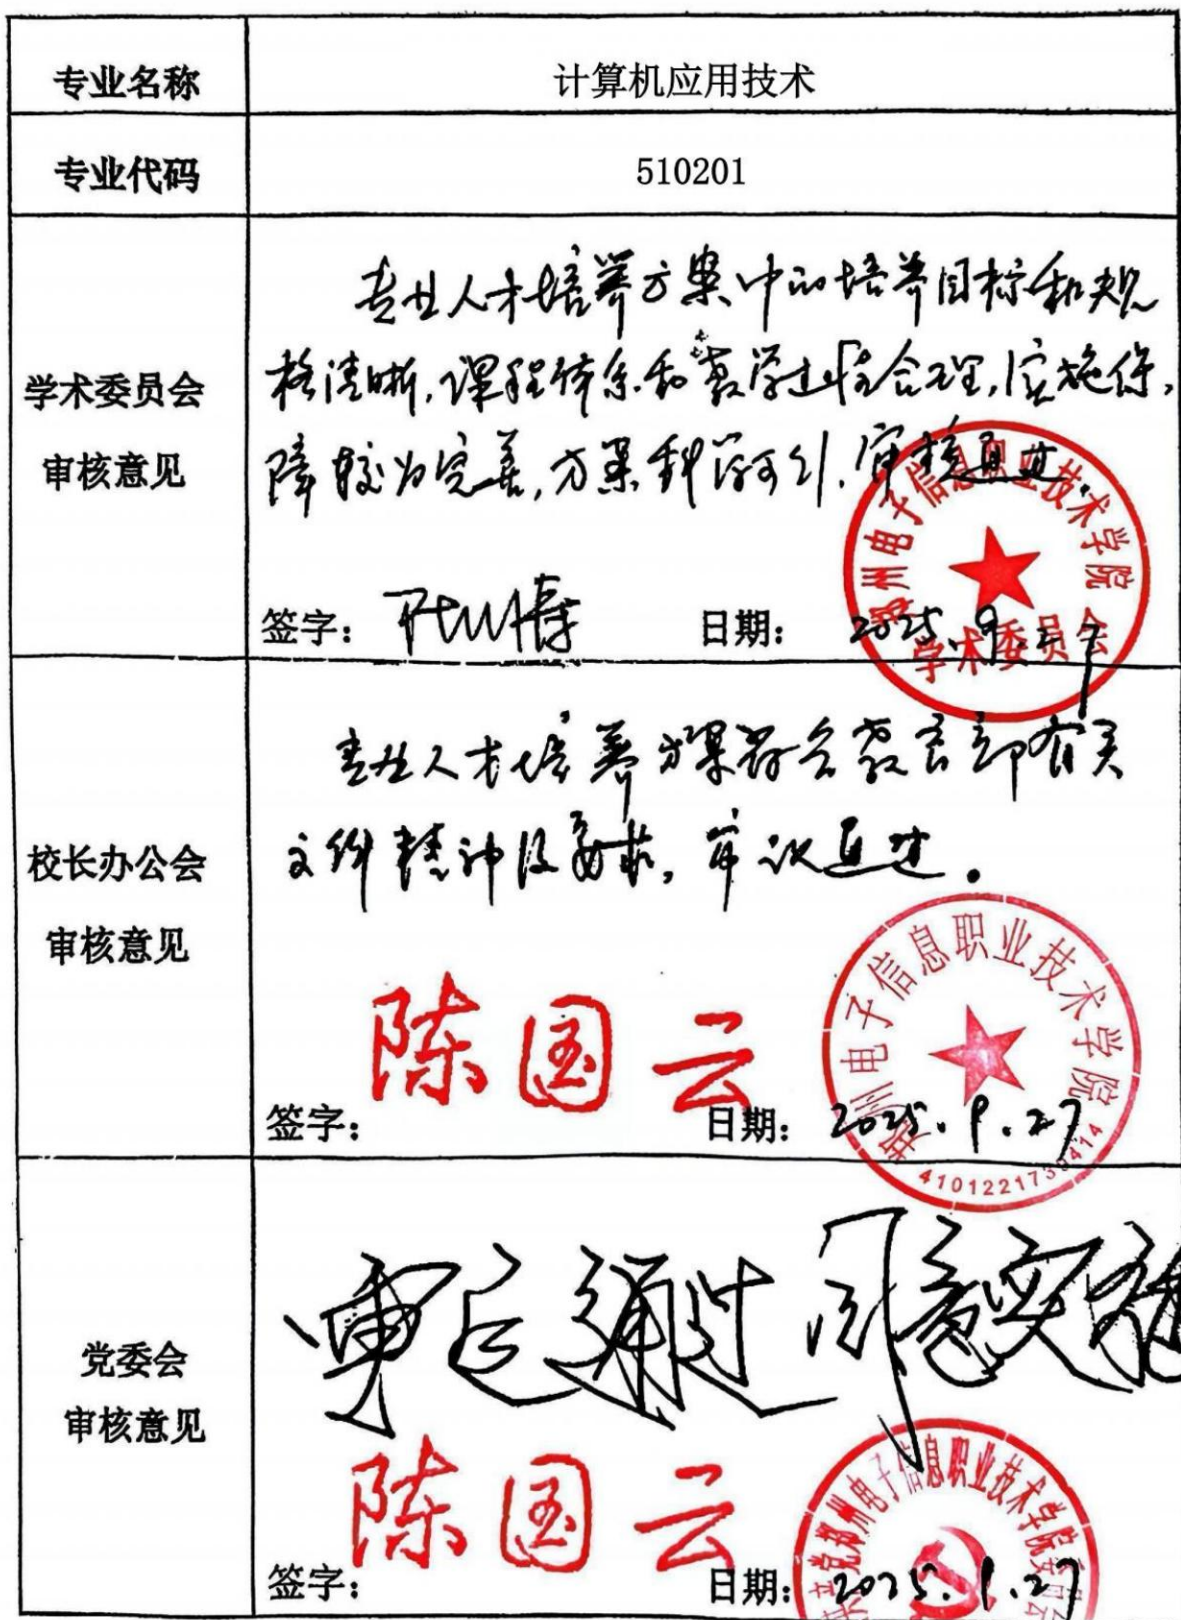 专业名称 计算机应用技术
专业代码 510201
学术委员会
审核意见
专业人才培养方案中的培养目标和规
格清晰,课程体系和教学进程合理,实施保
障较为完善,方案科学可行,审核通过。
签字: 日期: 2025.9.27
郑州电子信息职业技术学院
学术委员会
校长办公会
审核意见
专业人才培养方案符合教育部有关
文件精神及要求,审议通过。
陈国云
签字: 日期: 2025.9.27
郑州电子信息职业技术学院
党委会
审核意见
审定通过 同意实施
陈国云
签字: 日期: 2025.9.27